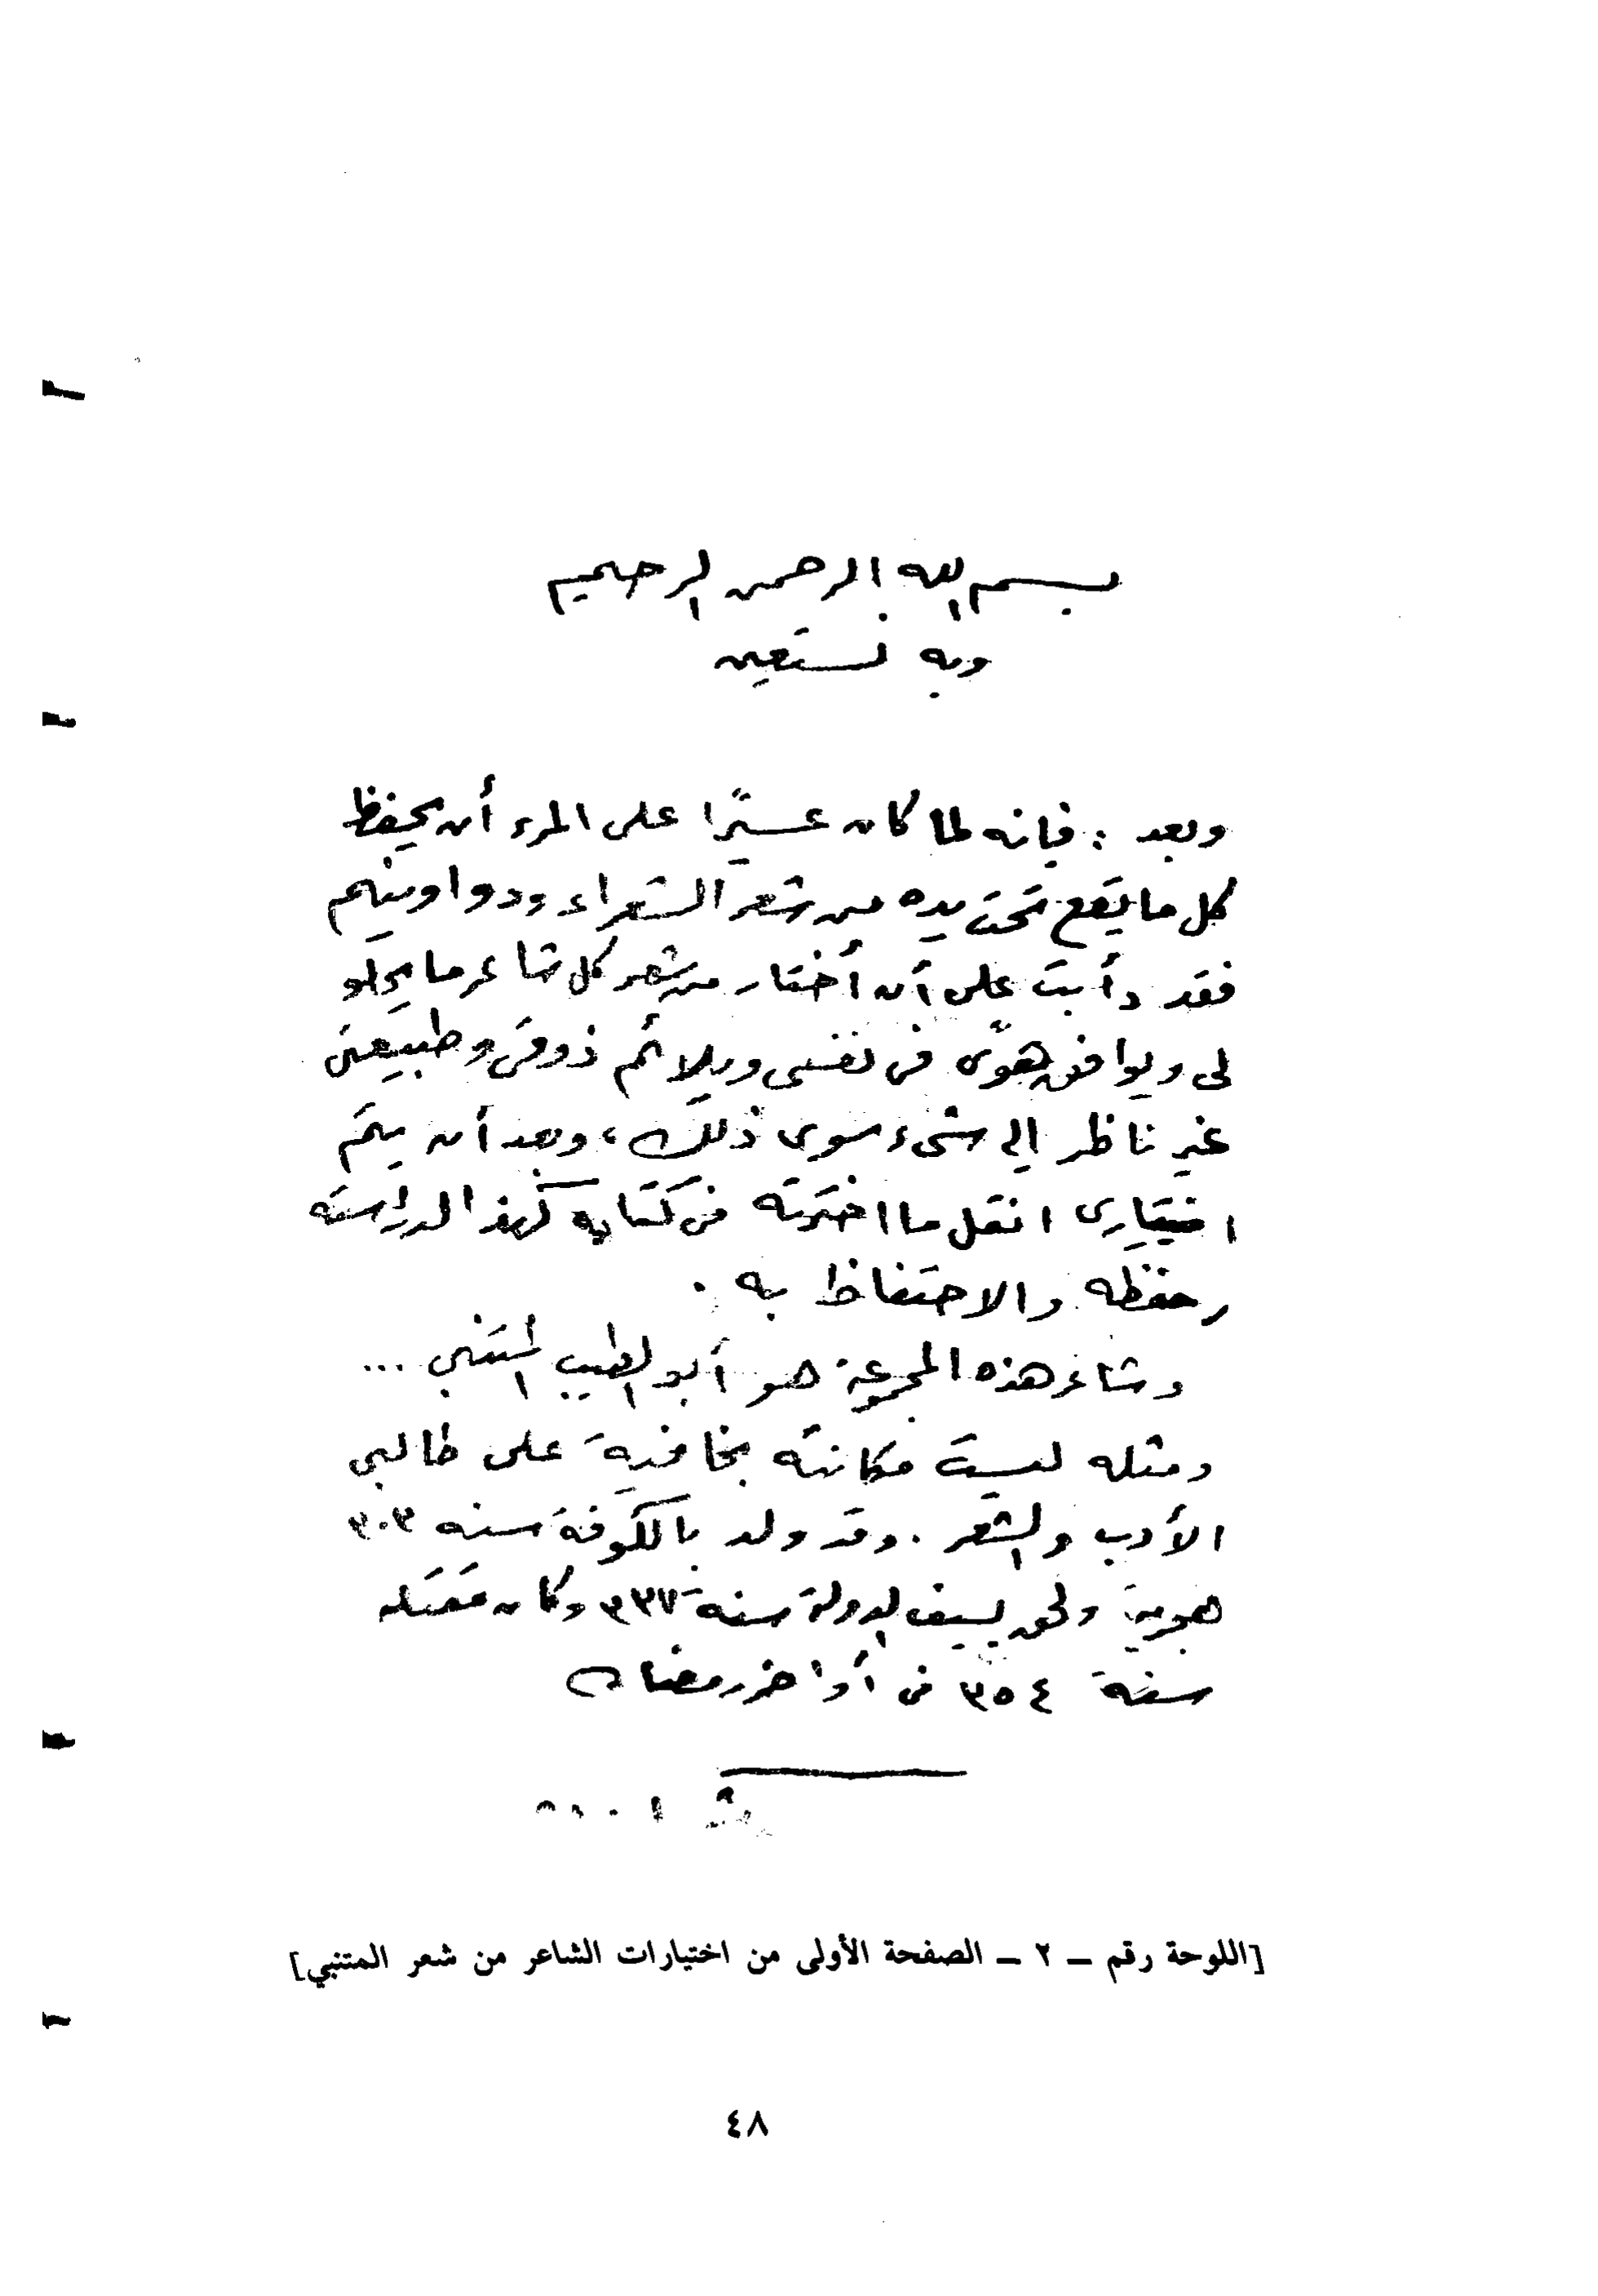 بسم الله الرحمن الرحيم
وبه نستعين
وبعد : فإنه لما كان عسيرًا على المرء أن يحفظ
كل ما يقع تحت يده من شعر الشعراء ودواوينهم
فقد دأبت على أن أختار من شعر كل شاعر ما يحلو
لى ويوافق هوًى فى نفسى ويلائم ذوقى وطبيعتى
غير ناظر إلى شىء سوى ذلك ، وبعد أن يتم
اختيارى انقل ما اخترته فى كتاب كهذا لدراسته
وحفظه والاحتفاظ به .
وشاعر هذه المجموعة هو أبو الطيب المتنبى ...
ومثله ليست مكانته بخافية على طالبى
الأدب والشعر . وقد ولد بالكوفة سنه ٣٠٣
هجرية ولحق بسيف الدولة سنة ٣٣٧ وكان مقتله
سنة ٣٥٤ فى أواخر رمضان
[اللوحة رقم ــ ٢ ــ الصفحة الأولى من اختيارات الشاعر من شعر المتنبي]
٤٨